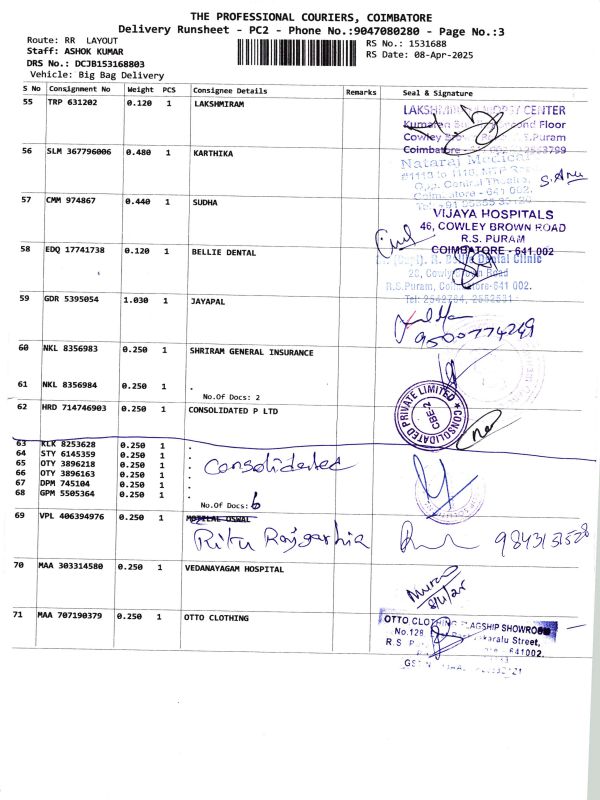 THE PROFESSIONAL COURIERS, COIMBATORE
Delivery Runsheet - PC2 - Phone No.:9047080280 - Page No.:3
Route: RR LAYOUT
Staff: ASHOK KUMAR
DRS No.: DCJB153168803
Vehicle: Big Bag Delivery
RS No.: 1531688
RS Date: 08-Apr-2025
S No Consignment No Weight PCS Consignee Details Remarks Seal & Signature
55 TRP 631202 0.120 1 LAKSHMIRAM
CENTER
Floor
Cowley R.S.Puram
Coimbatore
56 SLM 367796006 0.480 1 KARTHIKA
Nataraj Medical
57 CMM 974867 0.440 1 SUDHA
VIJAYA HOSPITALS
46, COWLEY BROWN ROAD
R.S. PURAM
COIMBATORE - 641 002
58 EDQ 17741738 0.120 1 BELLIE DENTAL
Dental Clinic
20, Cowly Brown Road
R.S.Puram, Coimbatore-641 002.
59 GDR 5395054 1.030 1 JAYAPAL
9500774249
60 NKL 8356983 0.250 1 SHRIRAM GENERAL INSURANCE
61 NKL 8356984 0.250 1 .
No.Of Docs: 2
62 HRD 714746903 0.250 1 CONSOLIDATED P LTD
CONSOLIDATED PRIVATE LIMITED
CBE-2
63 KLK 8253628 0.250 1 .
64 STY 6145359 0.250 1 .
65 OTY 3896218 0.250 1 .
66 OTY 3896163 0.250 1 .
67 DPM 745104 0.250 1 .
68 GPM 5505364 0.250 1 .
Consolidated
No.Of Docs: 6
69 VPL 406394976 0.250 1 MOTILAL OSWAL
Ritu Rajgarhia
9843131528
70 MAA 303314580 0.250 1 VEDANAYAGAM HOSPITAL
8/4/25
71 MAA 707190379 0.250 1 OTTO CLOTHING
OTTO CLOTHING FLAGSHIP SHOWROOM
No.128
Street,
R.S
641002.